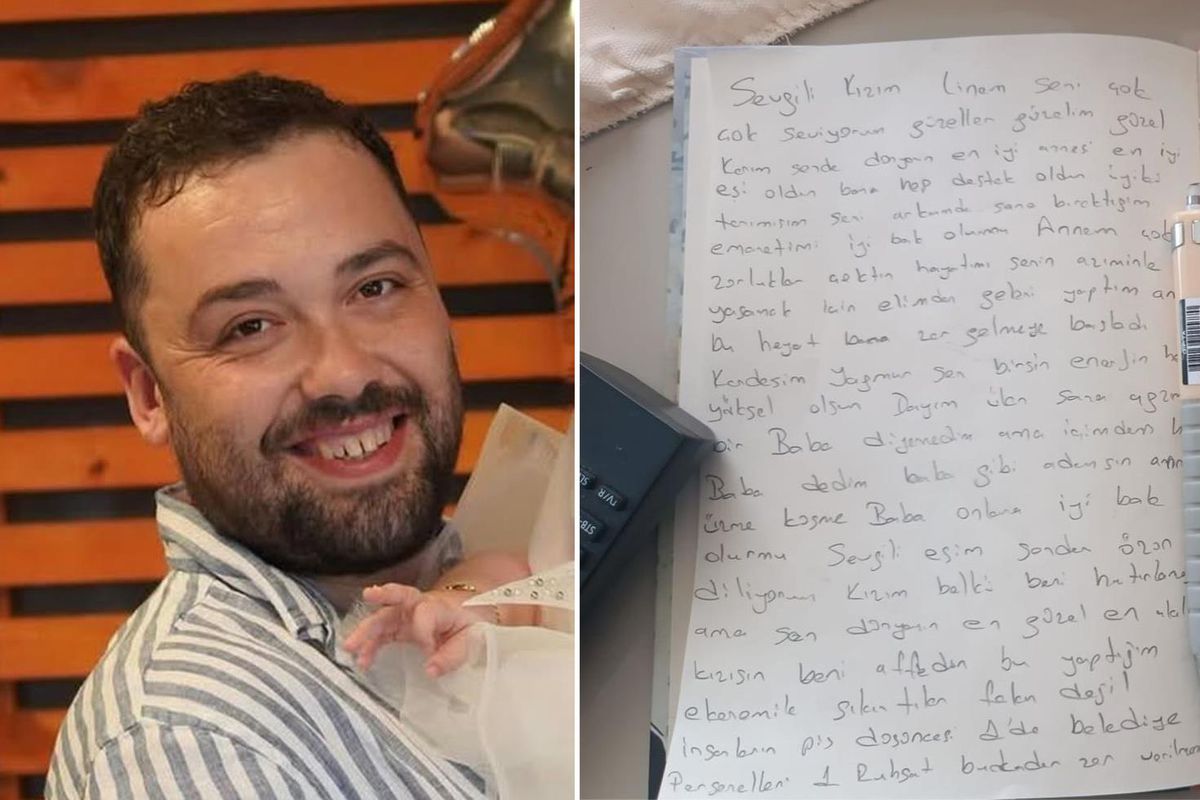 Sevgili Kızım Linam seni çok
çok seviyorum güzeller güzelim güzel
Karım sende dünyanın en iyi annesi en iyi
eşi oldun bana hep destek oldun iyiki
tanımışım seni arkamda sana bıraktığım
emanetimi iyi bak olurmu Annem çok
zorluklar çektin hayatımı senin azminle
yaşamak için elimden geleni yaptım
bu hayat bana zor gelmeye başladı
Kardeşim Yağmur sen birsin enerjin
yüksel olsun Dayım ülen sana
bir Baba diyemedim ama içimden
Baba dedim baba gibi adamsın
üzme Baba onlara iyi bak
olurmu Sevgili eşim senden özür
diliyorum Kızım belki beni
ama sen dünyanın en güzel en
kızısın beni affeden bu yaptığım
ekonomik sıkıntılar falan değil
insanların pis düşüncesi belediye
Personelleri 1 Ruhsat bu kadar zor
TV/R
STB